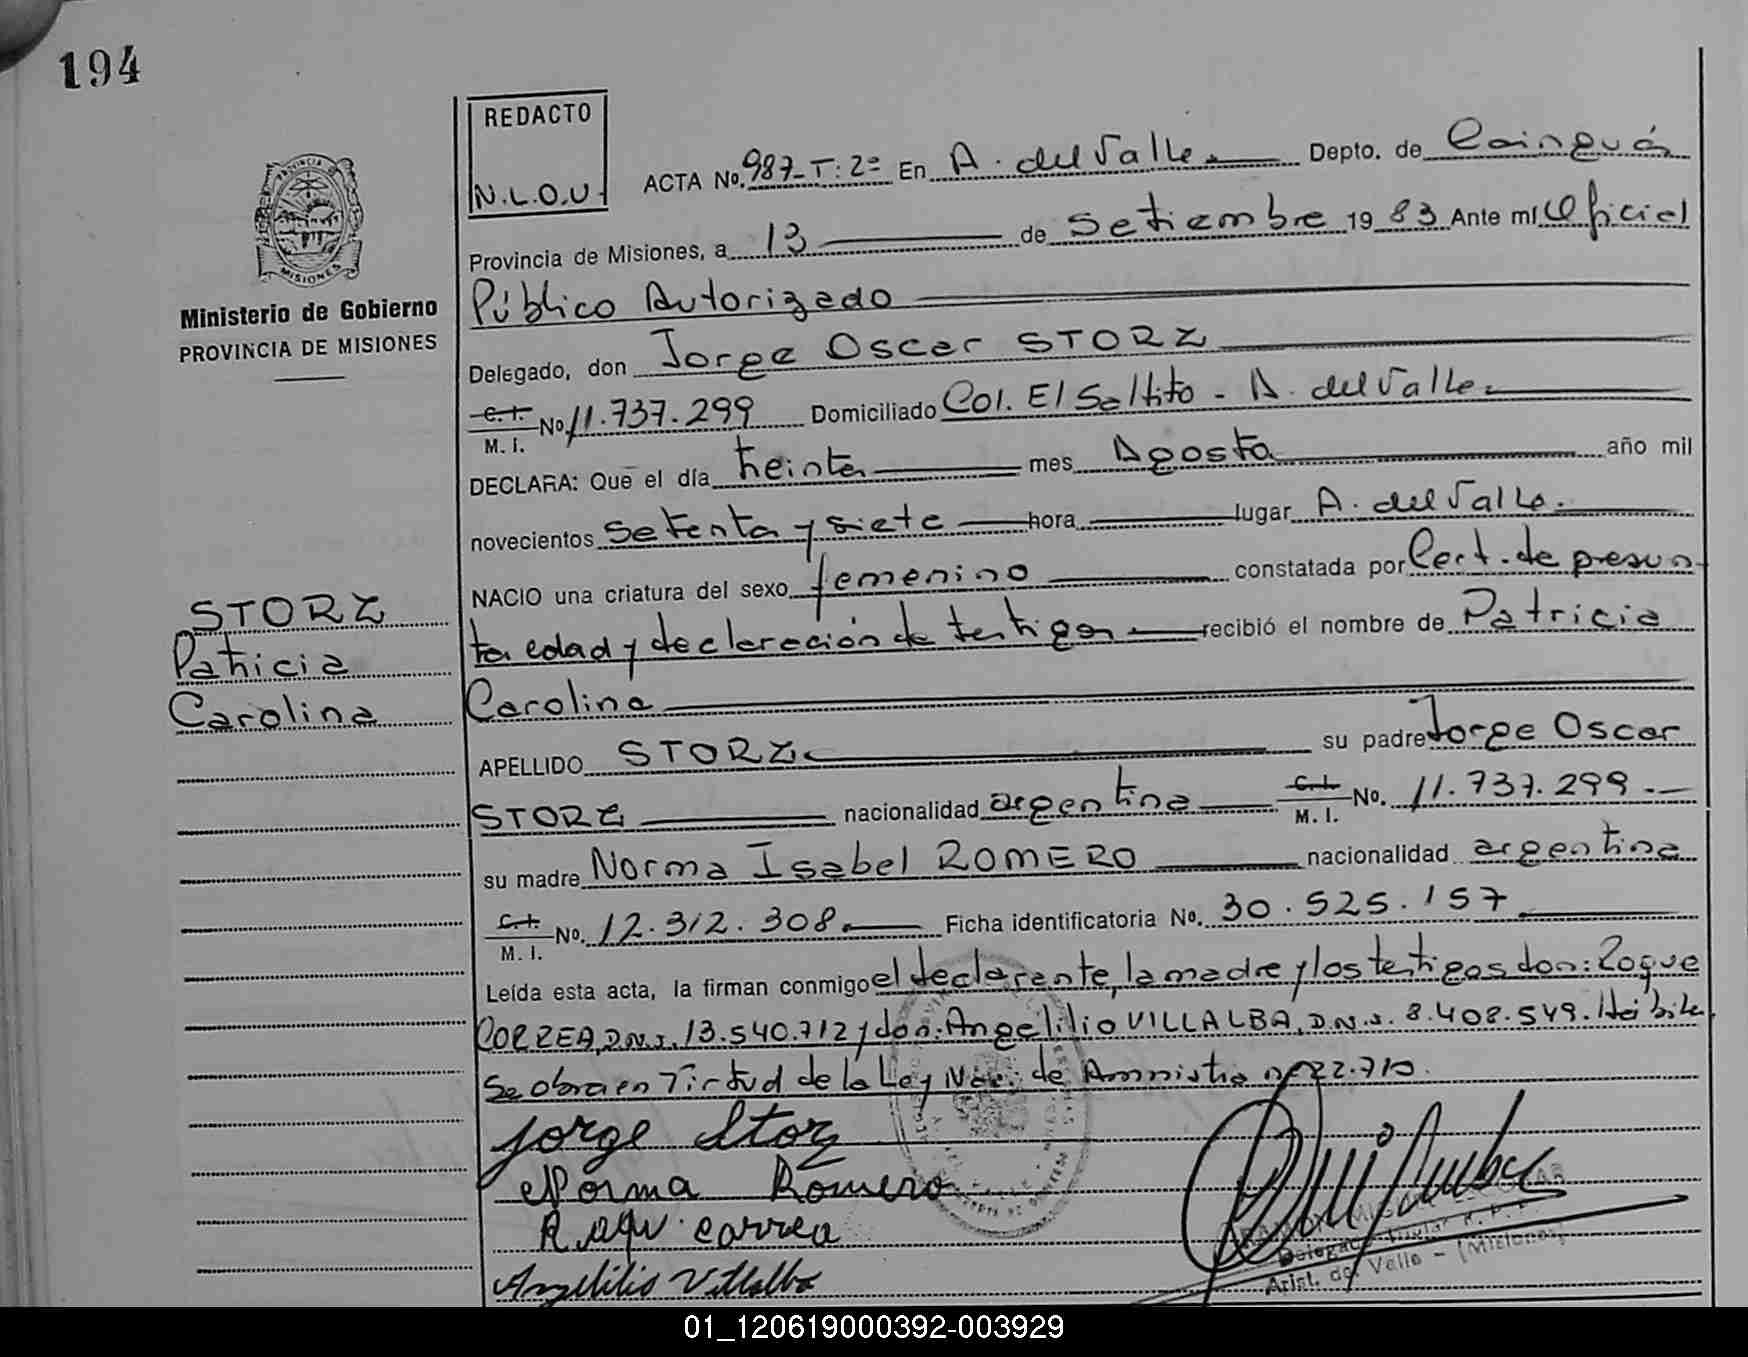 194
REDACTO
N.L.O.U.
PROVINCIA
MISIONES
Ministerio de Gobierno
PROVINCIA DE MISIONES
ACTA No. 987-T:2º En A. del Valle Depto. de Cainguás
Provincia de Misiones, a 13 de Setiembre 1983 Ante mí Oficial
Público Autorizado
Delegado, don Jorge Oscar STORZ
C.I. M. I. No. 11.737.299 Domiciliado Col. El Saltito - A. del Valle
DECLARA: Que el día treinta mes Agosto año mil
novecientos setenta y siete hora lugar A. del Valle.
NACIO una criatura del sexo femenino constatada por Cert. de presun-
STORZ
ta edad y declaración de testigos recibió el nombre de Patricia
Patricia
Carolina
Carolina
APELLIDO STORZ su padre Jorge Oscar
STORZ nacionalidad argentina C.I. M. I. No. 11.737.299.-
su madre Norma Isabel ROMERO nacionalidad argentina
C.I. M. I. No. 12.312.308 Ficha identificatoria No. 30.525.157
Leída esta acta, la firman conmigo el declarante, la madre y los testigos don: Roque
CORREA, D.N.I. 13.540.712 y don: Angelilio VILLALBA, D.N.I. 8.408.549.
Se obra en Virtud de la Ley Nac. de Amnistia nº 22.710.
Jorge Storz
Norma Romero
Correa
Angelilio Villalba
Delegado Titular R. P. P.
Arist. del Valle - (Misiones)
01_120619000392-003929